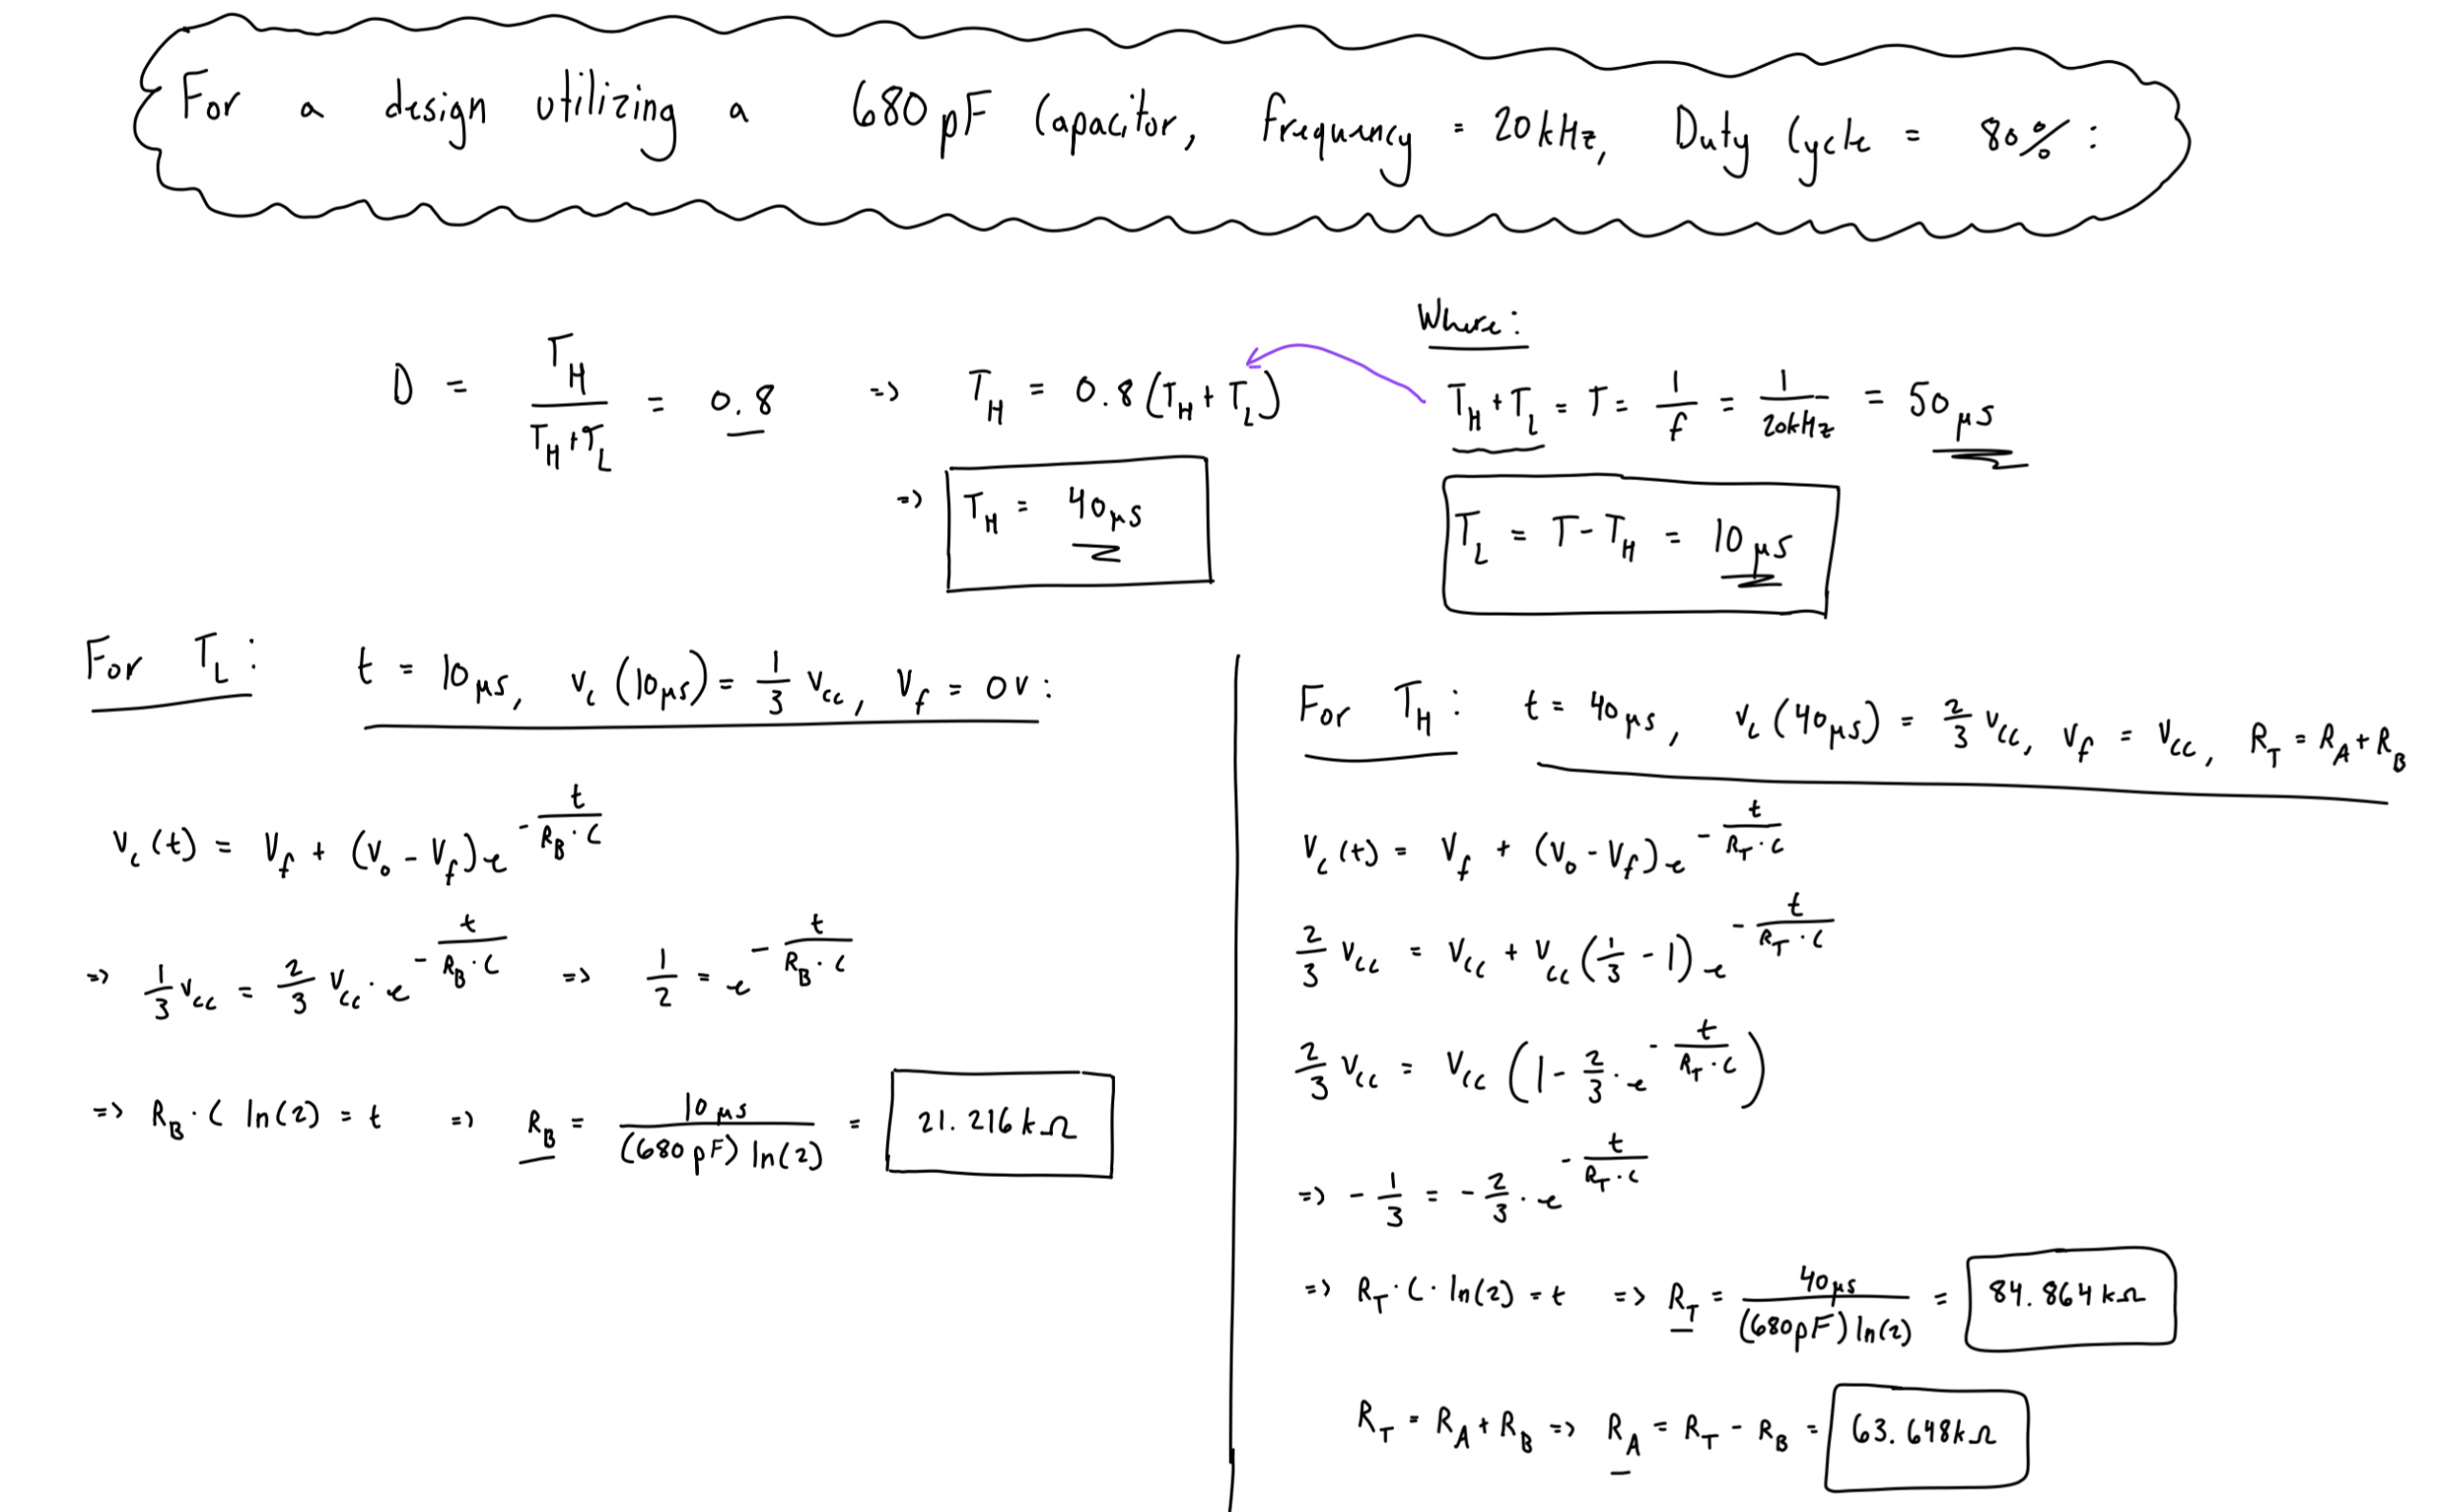 For a design utilizing a 680pF Capacitor, frequency = 20kHz, Duty Cycle = 80% :
Where:
D = T_H / (T_H + T_L) = 0.8 => T_H = 0.8(T_H + T_L)
T_H + T_L = T = 1/f = 1/20kHz = 50μs
=> T_H = 40μs
T_L = T - T_H = 10μs
For T_L : t = 10μs, V_c(10μs) = 1/3 V_cc, V_f = 0V :
V_c(t) = V_f + (V_o - V_f)e^(-t/(R_B · C))
=> 1/3 V_cc = 2/3 V_cc · e^(-t/(R_B · C)) => 1/2 = e^(-t/(R_B · C))
=> R_B · C ln(2) = t => R_B = 10μs / ((680pF) ln(2)) = 21.216kΩ
For T_H : t = 40μs, V_c(40μs) = 2/3 V_cc, V_f = V_cc, R_T = R_A + R_B
V_c(t) = V_f + (V_o - V_f)e^(-t/(R_T · C))
2/3 V_cc = V_cc + V_cc(1/3 - 1)e^(-t/(R_T · C))
2/3 V_cc = V_cc(1 - 2/3 · e^(-t/(R_T · C)))
=> -1/3 = -2/3 · e^(-t/(R_T · C))
=> R_T · C · ln(2) = t => R_T = 40μs / ((680pF) ln(2)) = 84.864kΩ
R_T = R_A + R_B => R_A = R_T - R_B = 63.648kΩ